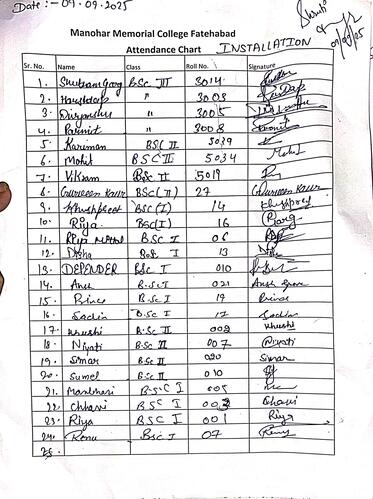 Date :- 09.09.2025
09/09/25
Manohar Memorial College Fatehabad
Attendance Chart INSTALLATION
Sr. No. Name Class Roll No. Signature
1. BSc III 3014
2. " 3003
3. Divyanshu " 3005
4. " 3008
5 BSC II 5039
6. Mohit BSC II 5034 Mohit
7. Vikram BSC II 5019
8. Gurneen Kaur BSC(II) 27 Gurneen Kaur
9. Khushpreet BSC(I) 14 Khushpreet
10. Riya BSc(I) 16
11. Riya BSC I 06
12. Disha I 13
13. DEPENDER BSc I 010
14. Ansh B.Sc I 021 Ansh
15. Prince B.Sc I 19 Prince
16. Sachin B.Sc I 17 Sachin
17. Khushi B.Sc II 002 Khushi
18. Niyati B.Sc II 007 Niyati
19. Simar B.Sc II 020 Simar
20. Sumel B.Sc II 010
21. B.S.C I 005
22. Chhavi BSC I 003 Chhavi
23. Riya BSC I 001 Riya
24. Renu BSC I 07 Renu
25.